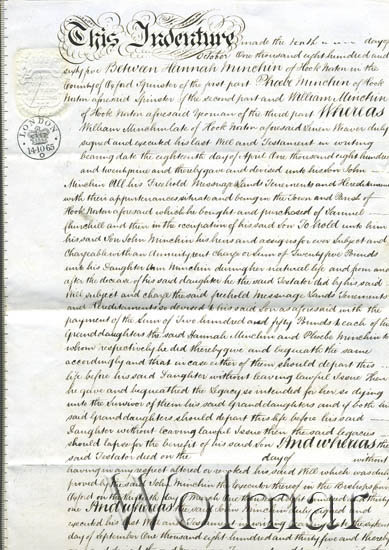 This Indenture made the tenth day of
October One thousand eight hundred and
sixty five Between Hannah Minchin of Hook Norton in the
County of Oxford Spinster of the first part Phoebe Minchin of Hook
Norton aforesaid Spinster of the second part and William Minchin
of Hook Norton aforesaid Yeoman of the third part Whereas
William Minchin late of Hook Norton aforesaid Linen Weaver duly
signed and executed his last Will and Testament in writing
bearing date the eighteenth day of April One thousand eight hundred
and twenty nine and thereby gave and devised unto his Son John
Minchin All his Freehold Messuage Lands Tenements and Heredits
with their appurtenances situate and being in the Town and Parish of
Hook Norton aforesaid which he bought and purchased of Samuel
Churchill and then in the occupation of his said Son To hold unto him
his said Son John Minchin his heirs and assigns for ever Subject and
Chargeable with an Annuity rent charge or Sum of Twenty five Pounds
unto his Daughter Ann Minchin during her natural life and from and
after the decease of his said daughter he the said Testator did by his said
Will subject and charge the said freehold messuage Lands Tenements
and Hereditaments so devised to his said Son as aforesaid with the
payment of the Sum of Two hundred and fifty Pounds to each of his
Granddaughters the said Hannah Minchin and Phoebe Minchin to
whom respectively he did thereby give and bequeath the same
accordingly and that in case either of them should depart this
life before his said Daughter without leaving lawful Issue Then
he gave and bequeathed the Legacy so intended for her so dying
unto the Survivor of them his said Granddaughters and if both his
said Granddaughters should depart this life before his said
Daughter without leaving lawful Issue then the said legacies
should lapse for the benefit of his said Son And whereas the
said Testator died on the day of without
having in any respect altered or revoked his said Will which was duly
proved by the said John Minchin the Executor thereof in the Bishops
Oxford on the eighth day of March One thousand eight hundred and thirty
one And whereas the said John Minchin duly signed and
executed his last Will and Testament in writing bearing date the
day of September One thousand eight hundred and thirty five and thereby
LONDON
14.10.65
D
Wolmar